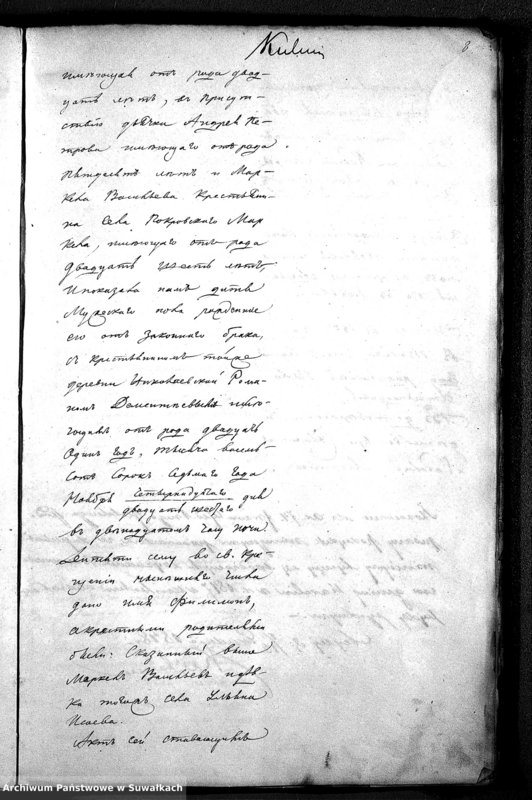 8
имѣющая отъ рода двад-
цать лѣтъ, въ присут-
ствіи дьячка Андрея Пе-
трова имѣющаго отъ рода
пятдесятъ лѣтъ и Мар-
кела Васильева Крестьяни-
на Села Покровскаго Мар
кела, имѣющаго отъ рода
двадцать шесть лѣтъ,
И показала намъ дитя
Мужескаго пола рожденное
его отъ законнаго брака,
съ крестьяниномъ тойже
деревни Николаевской Рома-
номъ Дементьевымъ имѣю-
щимъ отъ рода двадцать
Одинъ годъ, тысяча восемь-
сотъ Сорокъ Седьмаго Года
Ноября четырнадцатаго дня
двадцать шестаго
въ двѣнадцатомъ часу ночи
Дитяти сему во св. Кре-
щеніи нынѣшняго числа
дано имя Филимонъ,
а крестными родителями
были: Сказанный выше
Маркелъ Васильевъ и дѣв-
ка тогожъ села Ульяна
Исаева.
Актъ сей
Archiwum Państwowe w Suwałkach